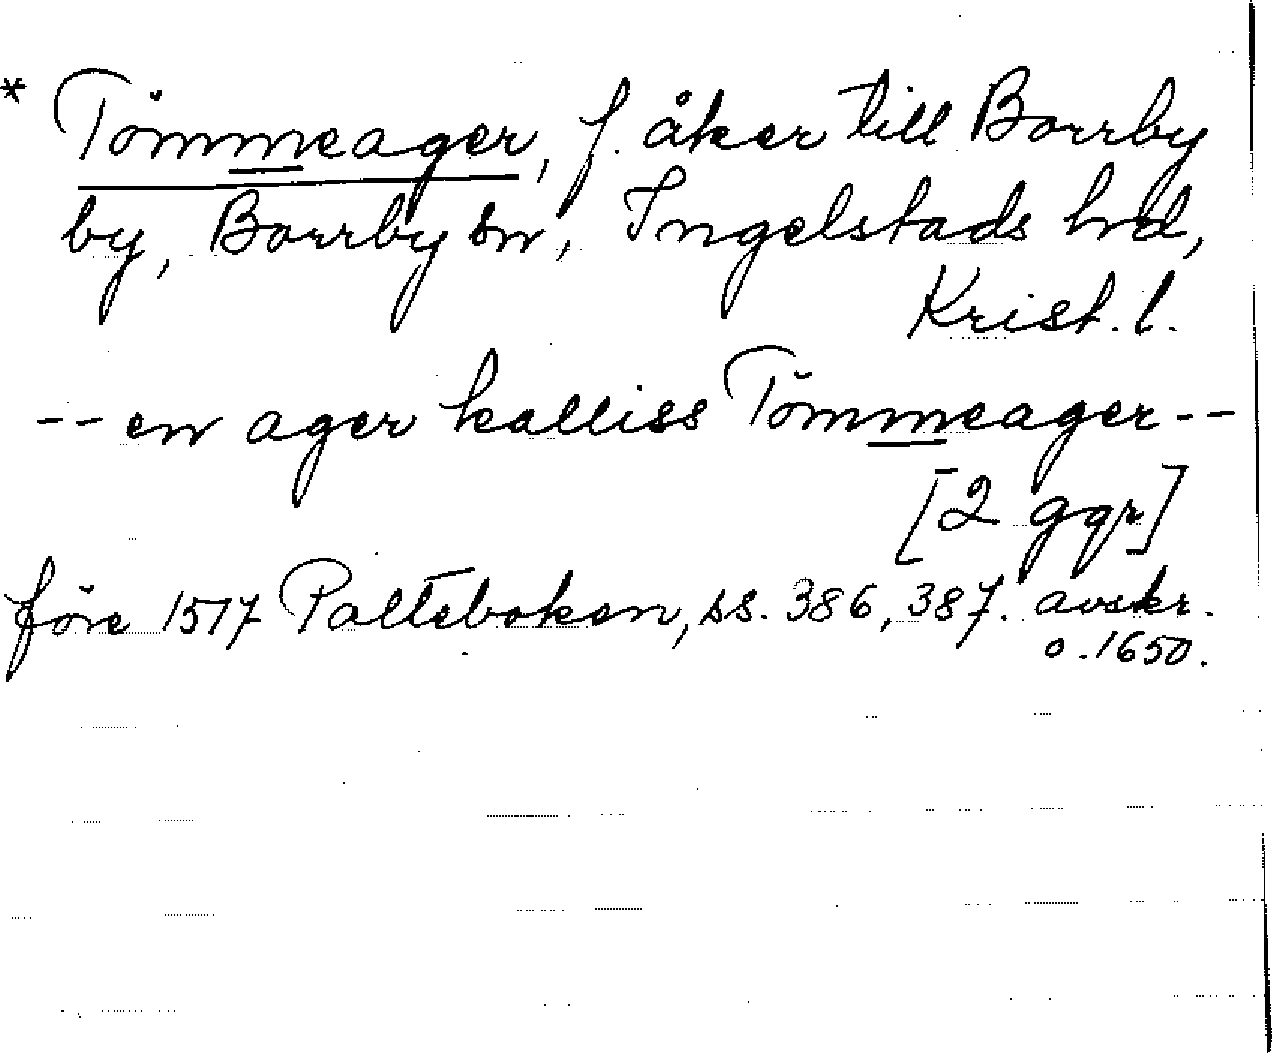 * Tömmeager, f. åker till Borrby
by, Borrby sn, Ingelstads hrd,
Krist. l.
-- en ager kalliss Tömmeager --
[2 ggr]
före 1517 Palteboken, ss. 386, 387. avskr.
o. 1650.